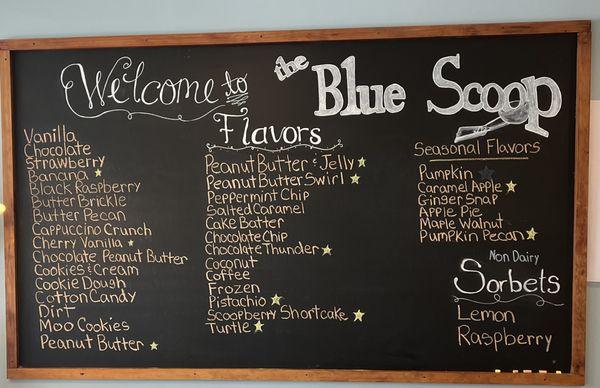 Welcome to the Blue Scoop
Flavors
Vanilla
Chocolate
Strawberry
Banana
Black Raspberry
Butter Brickle
Butter Pecan
Cappuccino Crunch
Cherry Vanilla
Chocolate Peanut Butter
Cookies & Cream
Cookie Dough
Cotton Candy
Dirt
Moo Cookies
Peanut Butter
Peanut Butter & Jelly
Peanut Butter Swirl
Peppermint Chip
Salted Caramel
Cake Batter
Chocolate Chip
Chocolate Thunder
Coconut
Coffee
Frozen
Pistachio
Scoopberry Shortcake
Turtle
Seasonal Flavors
Pumpkin
Caramel Apple
Ginger Snap
Apple Pie
Maple Walnut
Pumpkin Pecan
Non Dairy
Sorbets
Lemon
Raspberry